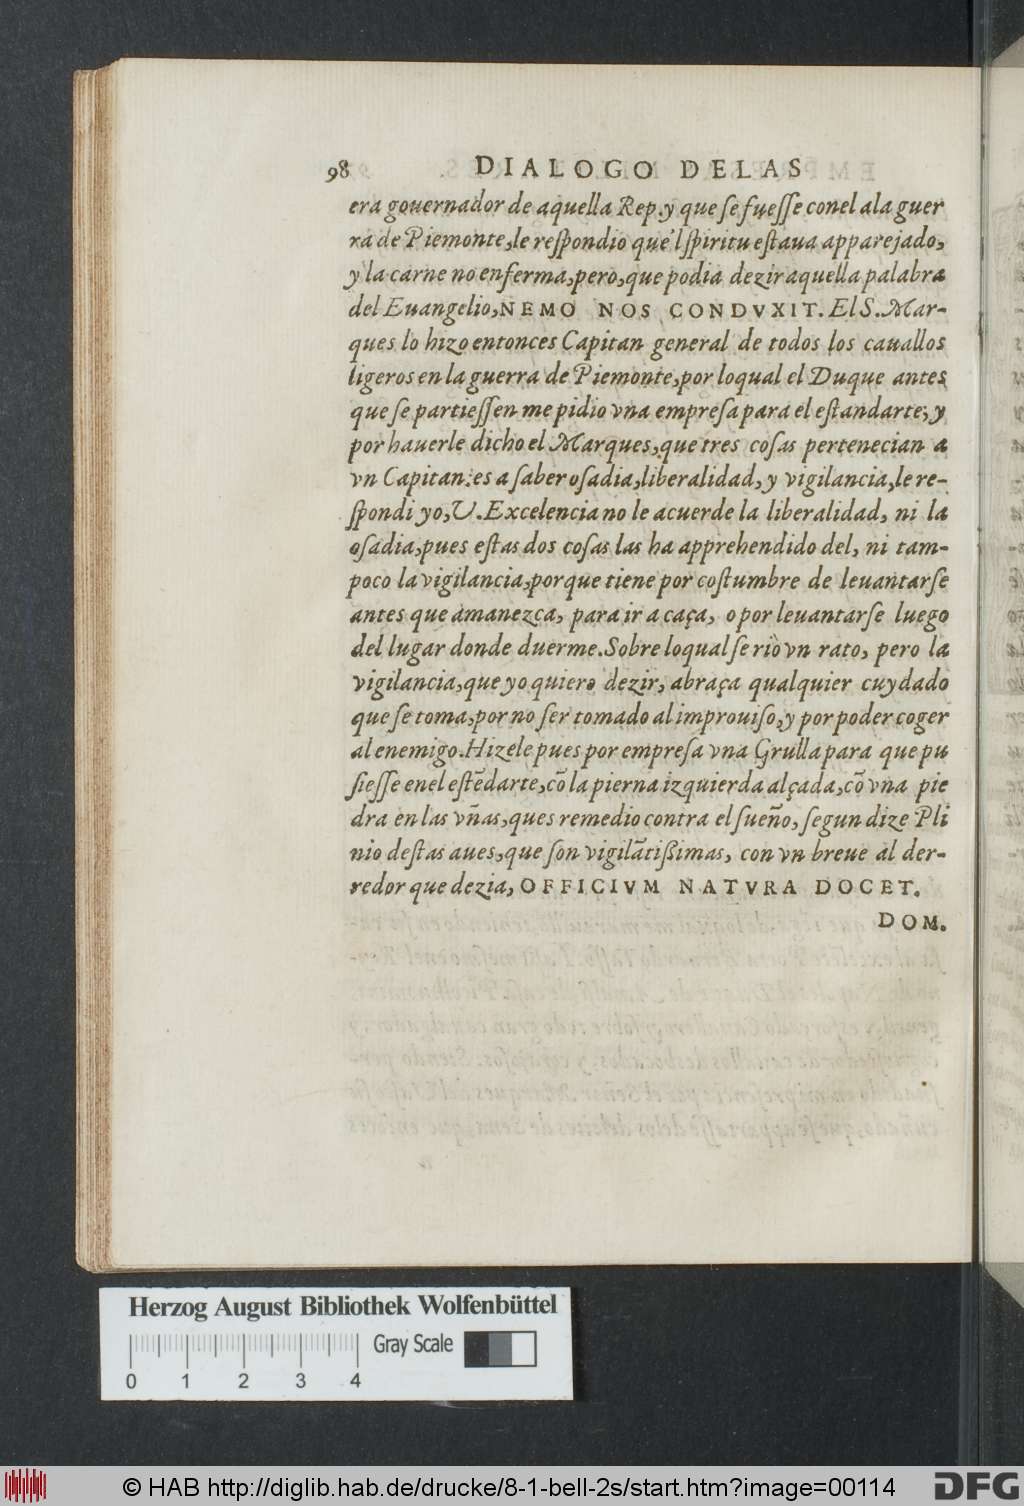 98 DIALOGO DELAS
era gouernador de aquella Rep. y que se fuesse conel ala guer
ra de Piemonte, le respondio que'l spiritu estaua apparejado,
y la carne no enferma, pero, que podia dezir aquella palabra
del Euangelio, NEMO NOS CONDVXIT. El S. Mar-
ques lo hizo entonces Capitan general de todos los cauallos
ligeros en la guerra de Piemonte, por loqual el Duque antes
que se partiessen me pidio vna empresa para el estandarte; y
por hauerle dicho el Marques, que tres cosas pertenecian a
vn Capitan: es a saber osadia, liberalidad, y vigilancia, le re-
spondi yo, V. Excelencia no le acuerde la liberalidad, ni la
osadia, pues estas dos cosas las ha apprehendido del, ni tam-
poco la vigilancia, porque tiene por costumbre de leuantarse
antes que amanezca, para ir a caça, o por leuantarse luego
del lugar donde duerme. Sobre loqual se riò vn rato, pero la
vigilancia, que yo quiero dezir, abraça qualquier cuydado
que se toma, por no ser tomado al improuiso, y por poder coger
al enemigo. Hizele pues por empresa vna Grulla para que pu
siesse enel estẽdarte, cõ la pierna izquierda alçada, cõ vna pie
dra en las vñas, ques remedio contra el sueño, segun dize Pli
nio destas aues, que son vigilãtißimas, con vn breue al der-
redor que dezia, OFFICIVM NATVRA DOCET.
DOM.
Herzog August Bibliothek Wolfenbüttel
Gray Scale
0 1 2 3 4
© HAB http://diglib.hab.de/drucke/8-1-bell-2s/start.htm?image=00114
DFG